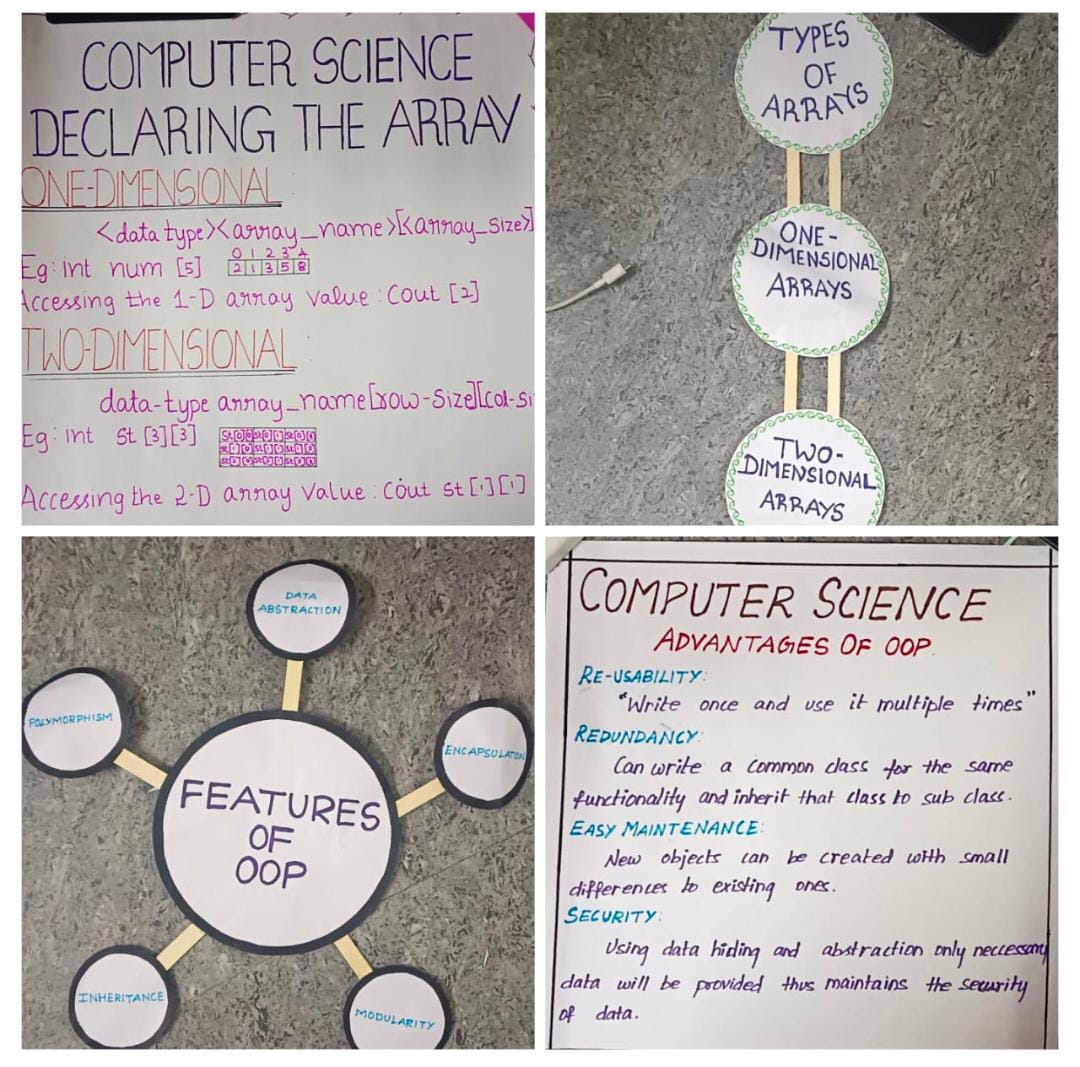 COMPUTER SCIENCE
DECLARING THE ARRAY
ONE-DIMENSIONAL
<data type><array_name>[<array_size>]
Eg: int num [5]
0 1 2 3 4
2 1 3 5 8
Accessing the 1-D array value : Cout [2]
TWO-DIMENSIONAL
data-type array_name[row-size][col-si
Eg: int st [3][3]
Accessing the 2-D array value : Cout st [1][1]
TYPES
OF
ARRAYS
ONE-
DIMENSIONAL
ARRAYS
TWO-
DIMENSIONAL
ARRAYS
DATA
ABSTRACTION
POLYMORPHISM
ENCAPSULATION
FEATURES
OF
OOP
INHERITANCE
MODULARITY
COMPUTER SCIENCE
ADVANTAGES OF OOP
RE-USABILITY:
"Write once and use it multiple times"
REDUNDANCY:
Can write a common class for the same
functionality and inherit that class to sub class.
EASY MAINTENANCE:
New objects can be created with small
differences to existing ones.
SECURITY:
Using data hiding and abstraction only neccessary
data will be provided thus maintains the security
of data.